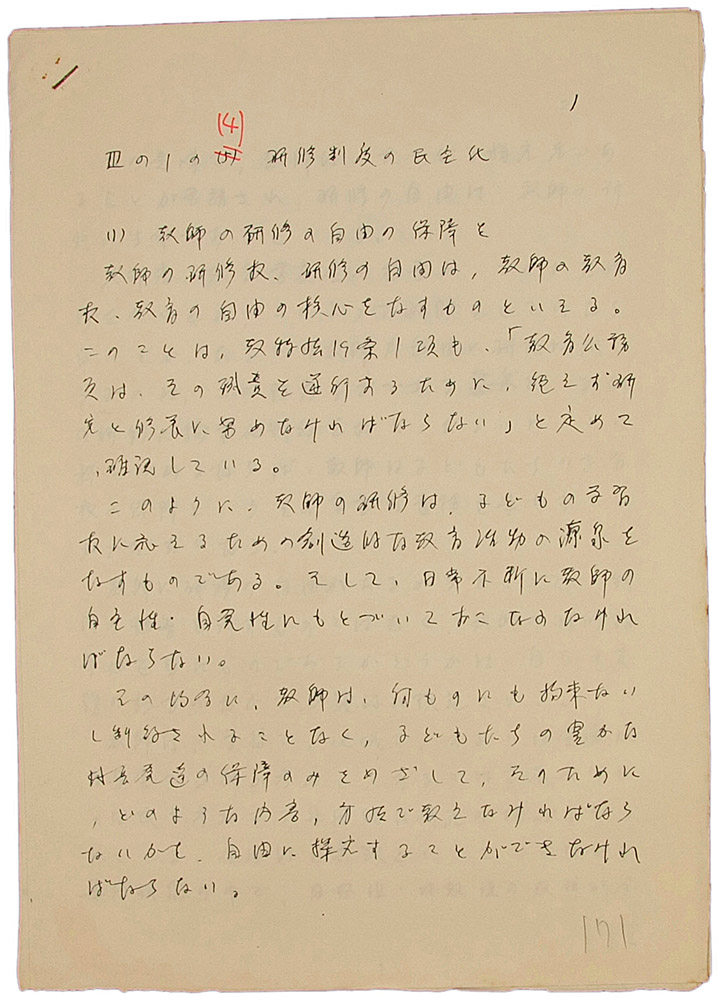 1
(4)
Ⅲの1の 研修制度の民主化
(1) 教師の研修の自由の保障と
教師の研修权、研修の自由は、教師の教育
权、教育の自由の核心をなすものといえる。
このことは、教特法19条1項も、「教育公務
員は、その職責を遂行するために、絶えず研
究と修養に努めなければならない」と定めて
、確認している。
このように、教師の研修は、子どもの学習
权に応えるための創造的な教育活動の源泉を
なすものである。そして、日常不断に教師の
自主性・自発性にもとづいておこなわなけれ
ばならない。
その場合に、教師は、何ものにも拘束ない
し制約されることなく、子どもたちの豊かな
成長発達の保障のみをめざして、そのために
、どのような内容、方法で教えなければなら
ないかを、自由に探究することができなけれ
ばならない。
171